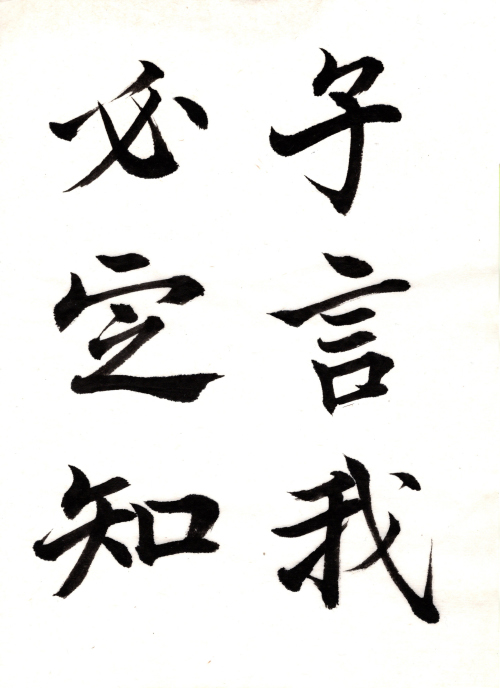 子言我
必定知